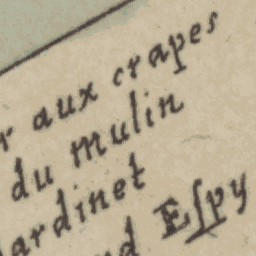 r aux crapes
du mulin
ardinet
d Eſpy